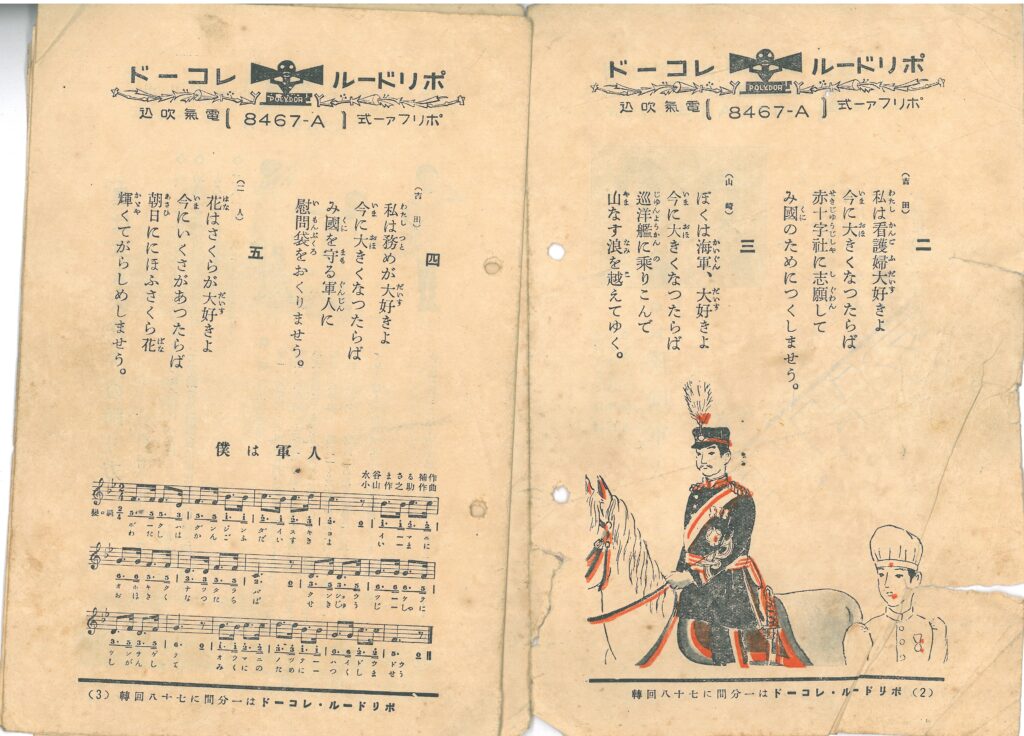 ポリドール レコード
POLYDOR
ポリファー式 〔 8467-A 〕 電氣吹込
二
(吉田)
私は看護婦大好きよ
今に大きくなつたらば
赤十字社に志願して
み國のためにつくしませう。
三
(山崎)
ぼくは海軍、大好きよ
今に大きくなつたらば
巡洋艦に乘りこんで
山なす浪を越えてゆく。
ポリドール・レコードは一分間に七十八回轉 (2)
ポリドール レコード
POLYDOR
ポリファー式 〔 8467-A 〕 電氣吹込
四
(吉田)
私は務めが大好きよ
今に大きくなつたらば
み國を守る軍人に
慰問袋をおくりませう。
五
(二人)
花はさくらが大好きよ
今にいくさがあつたらば
朝日ににほふさくら花
輝くてがらしめしませう。
僕は軍人
水谷まさる補作
小山作之助作曲
わたしは かんごふ だいすき よ いまに
おほきく なつたら ば
しがんして みくにの ために つくしませう
ポリドール・レコードは一分間に七十八回轉 (3)